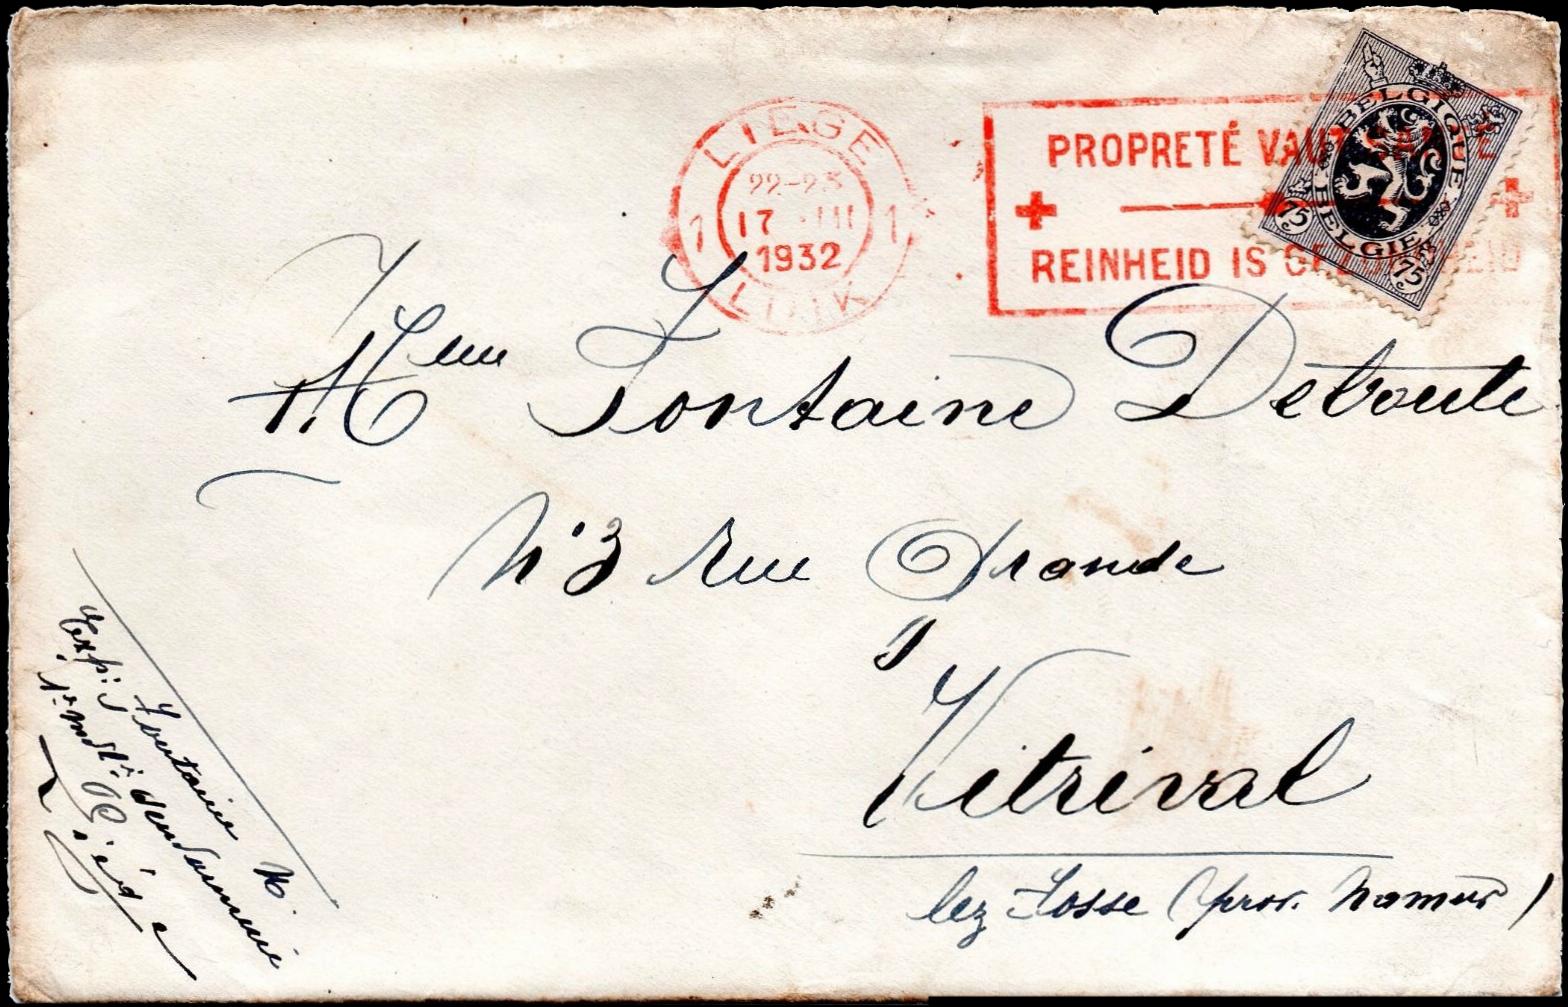 LIEGE
22-23
1 17 III 1
1932
LUIK
PROPRETÉ VAUT SANTÉ
REINHEID IS GEZONDHEID
BELGIQUE
BELGIË
75 75
Mme Fontaine Detroute
N° 3 Rue Grande
à
Vitrival
lez Fosse (prov. Namur)
Fontaine N.
Exp: Gendarmerie
Liège